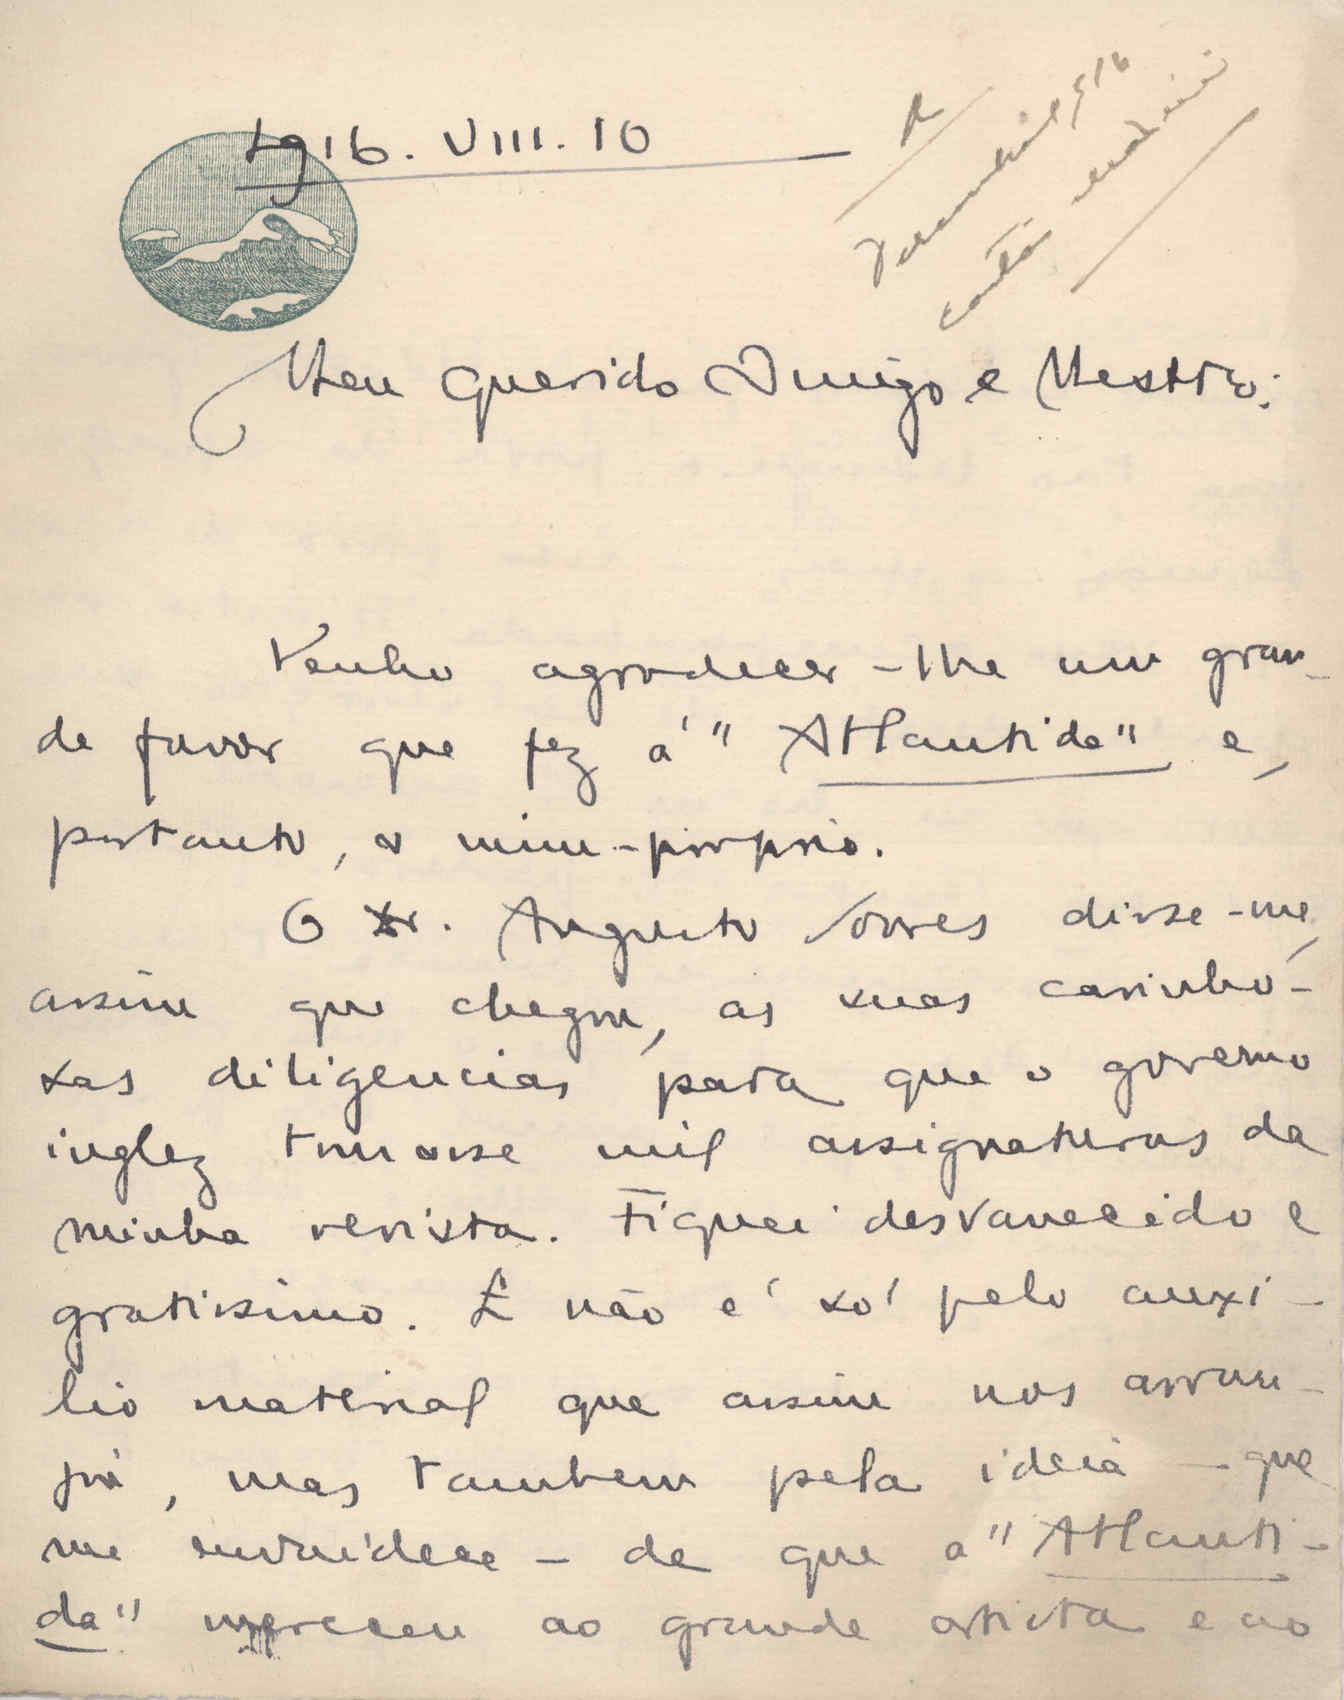 1916. VIII. 10
R
Meu Querido Amigo e Mestre:
Venho agradecer-lhe um gran-
de favor que fez á "Atlantida" e,
portanto, a mim-proprio.
O Sr. Augusto Soares disse-me,
assim que chegou, as suas carinho-
sas diligencias para que o governo
inglez tomasse mil assignaturas da
minha revista. Fiquei desvanecido e
gratissimo. E não é só pelo auxi-
lio material que assim nos arran-
jou, mas tambem pela ideia - que
me envaidece - de que a "Atlanti-
da" mereceu ao grande artista e ao